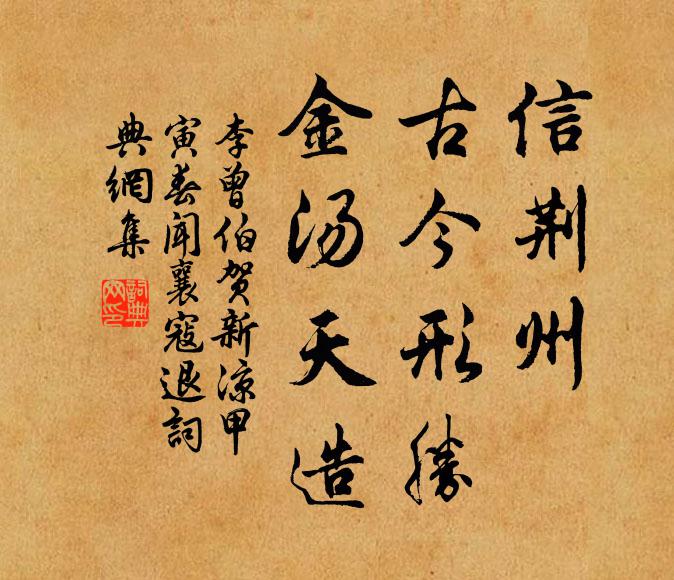 信荆州
古今形勝
金汤天造
李曾伯贺新凉甲
寅春闻襄寇退詞
典網集
詞典网印